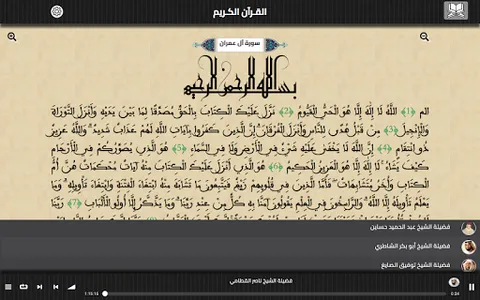 القرآن الكريم
سورة آل عمران
بسم الله الرحمن الرحيم
الم ﴿1﴾ اللَّهُ لَا إِلَهَ إِلَّا هُوَ الْحَيُّ الْقَيُّومُ ﴿2﴾ نَزَّلَ عَلَيْكَ الْكِتَابَ بِالْحَقِّ مُصَدِّقًا لِمَا بَيْنَ يَدَيْهِ وَأَنْزَلَ التَّوْرَاةَ
وَالْإِنْجِيلَ ﴿3﴾ مِنْ قَبْلُ هُدًى لِلنَّاسِ وَأَنْزَلَ الْفُرْقَانَ إِنَّ الَّذِينَ كَفَرُوا بِآيَاتِ اللَّهِ لَهُمْ عَذَابٌ شَدِيدٌ وَاللَّهُ عَزِيزٌ
ذُو انْتِقَامٍ ﴿4﴾ إِنَّ اللَّهَ لَا يَخْفَى عَلَيْهِ شَيْءٌ فِي الْأَرْضِ وَلَا فِي السَّمَاءِ ﴿5﴾ هُوَ الَّذِي يُصَوِّرُكُمْ فِي الْأَرْحَامِ
كَيْفَ يَشَاءُ لَا إِلَهَ إِلَّا هُوَ الْعَزِيزُ الْحَكِيمُ ﴿6﴾ هُوَ الَّذِي أَنْزَلَ عَلَيْكَ الْكِتَابَ مِنْهُ آيَاتٌ مُحْكَمَاتٌ هُنَّ أُمُّ
الْكِتَابِ وَأُخَرُ مُتَشَابِهَاتٌ فَأَمَّا الَّذِينَ فِي قُلُوبِهِمْ زَيْغٌ فَيَتَّبِعُونَ مَا تَشَابَهَ مِنْهُ ابْتِغَاءَ الْفِتْنَةِ وَابْتِغَاءَ تَأْوِيلِهِ وَمَا
يَعْلَمُ تَأْوِيلَهُ إِلَّا اللَّهُ وَالرَّاسِخُونَ فِي الْعِلْمِ يَقُولُونَ آمَنَّا بِهِ كُلٌّ مِنْ عِنْدِ رَبِّنَا وَمَا يَذَّكَّرُ إِلَّا أُولُو الْأَلْبَابِ ﴿7﴾ رَبَّنَا
فضيلة الشيخ عبد الحميد حساين
فضيلة الشيخ أبو بكر الشاطري
فضيلة الشيخ توفيق الصايغ
فضيلة الشيخ ناصر القطامي
1:15:15
0:24